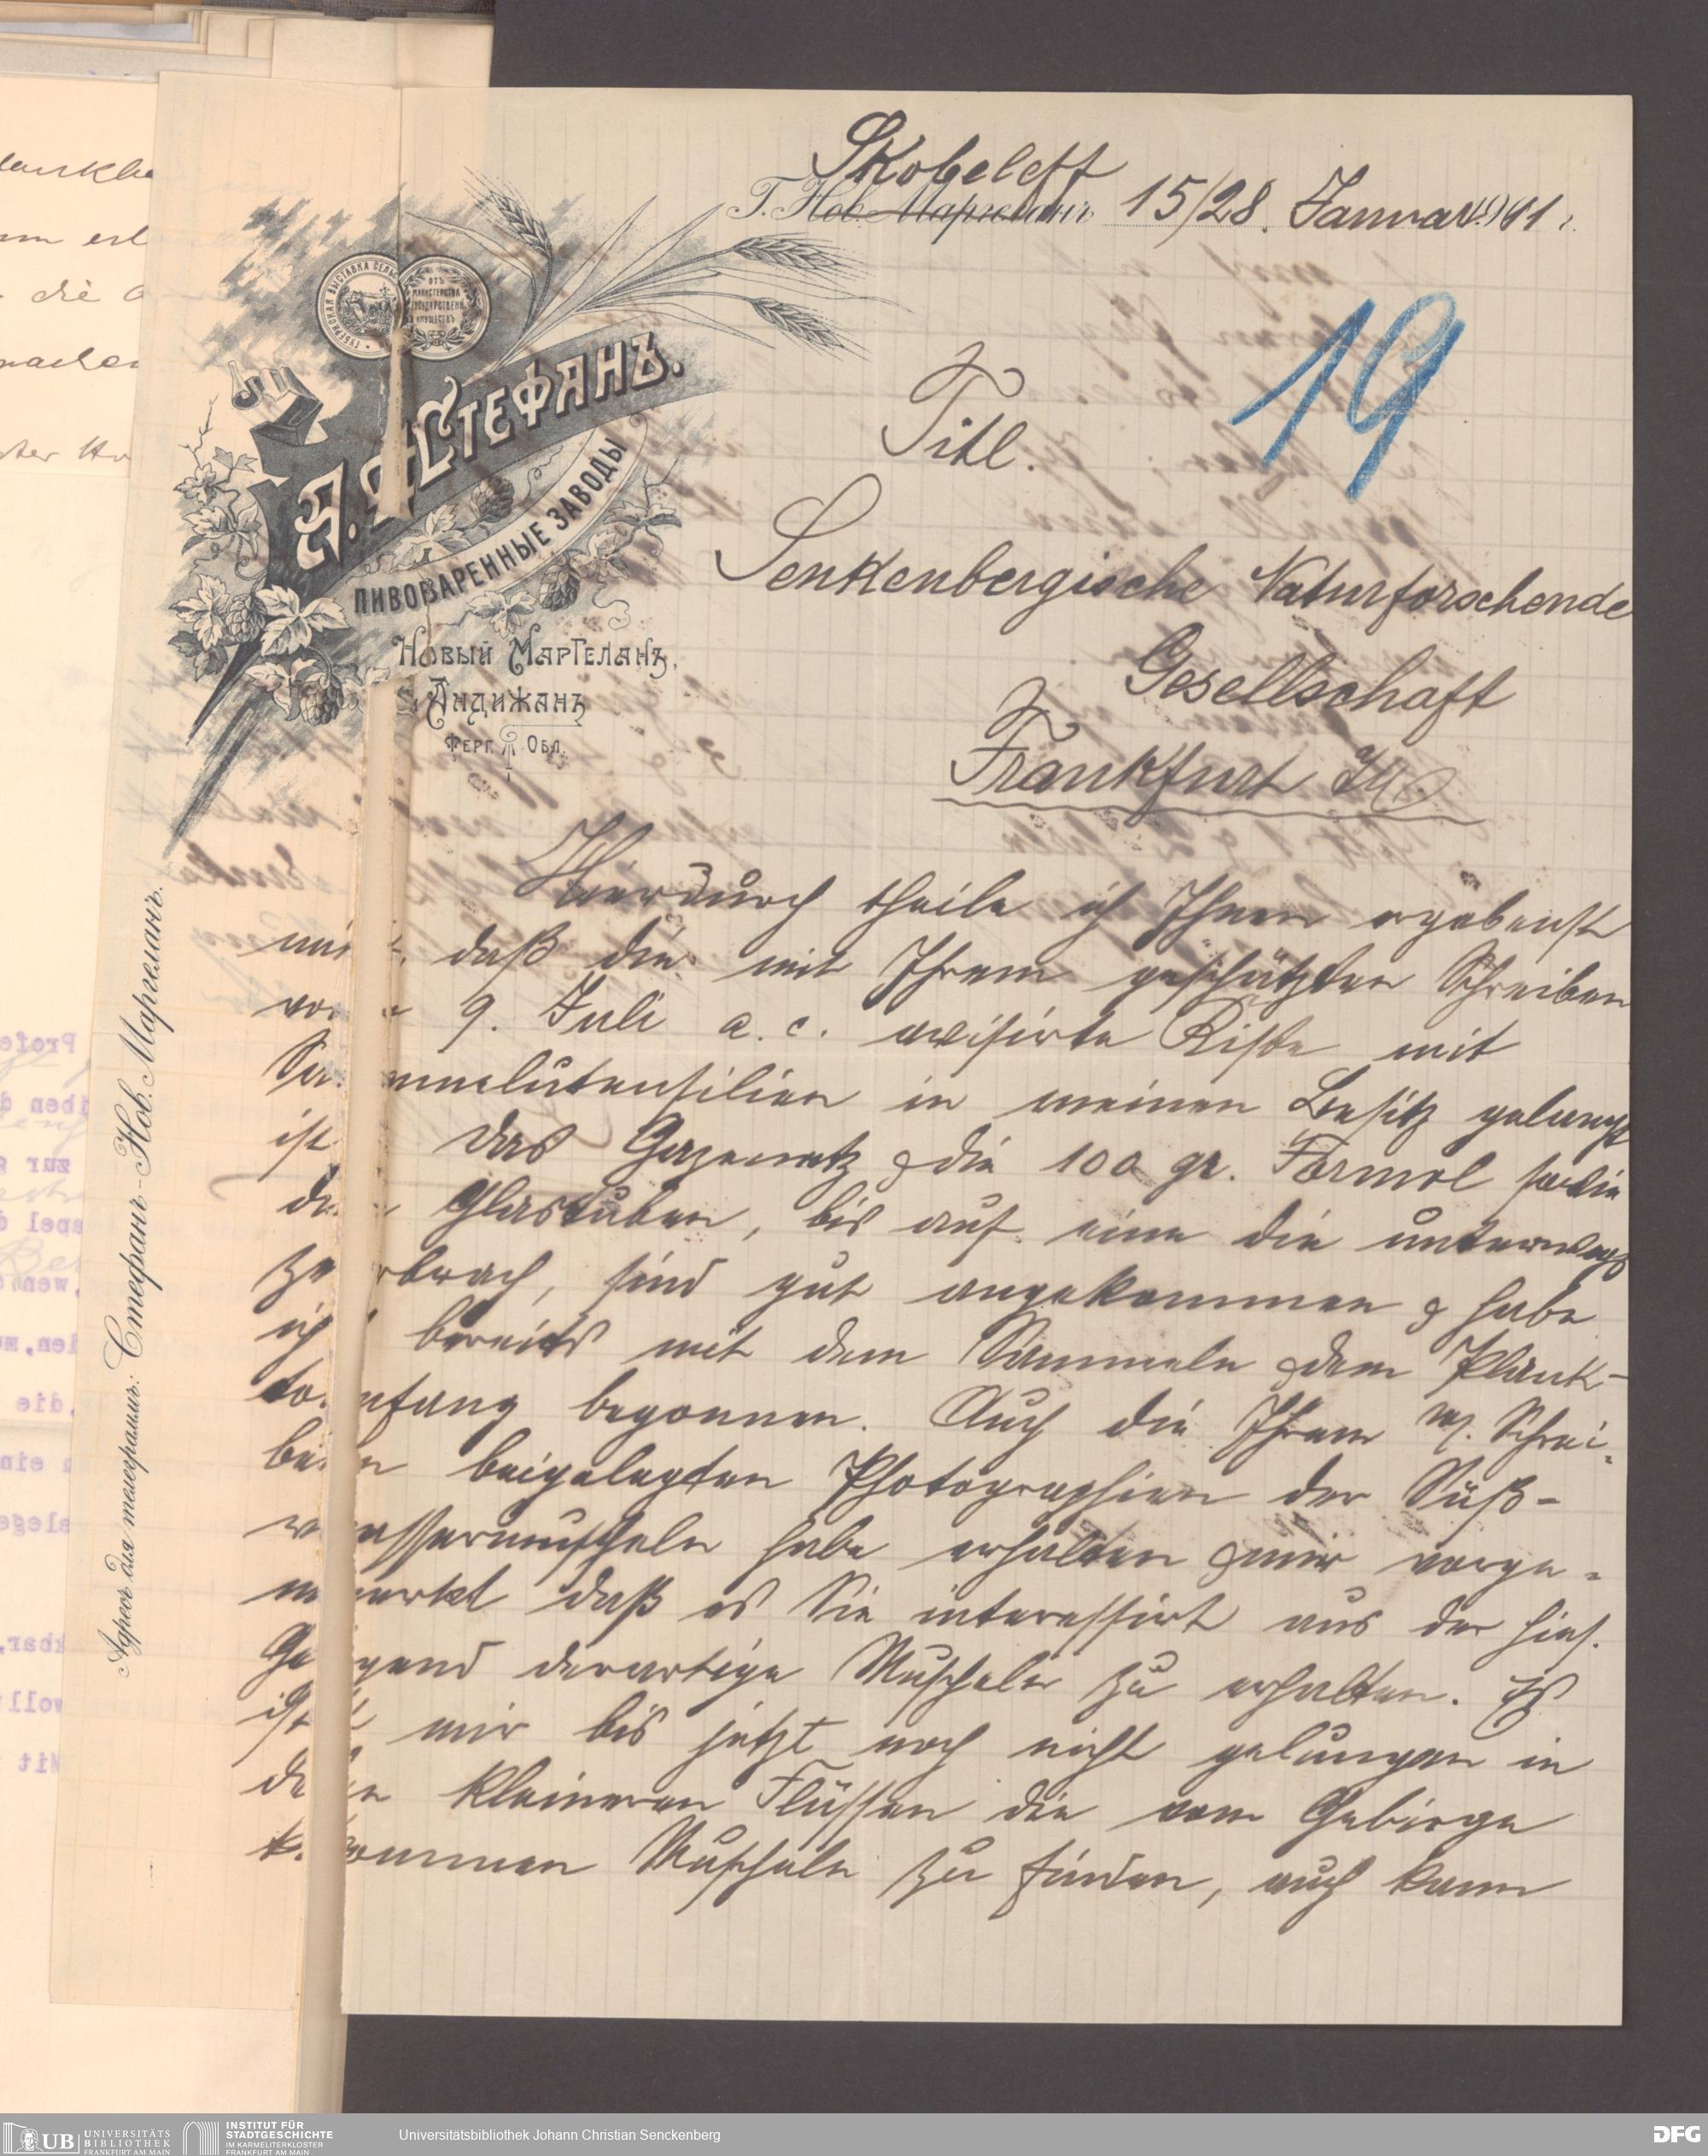 Skobeleff
Г. Нов. Маргеланъ 15/28. Januar 1911 г.
19
ГУБЕРНСКАЯ ВЫСТАВКА СЕЛЬС
ОТЪ МИНИСТЕРСТВА ГОСУДАРСТВЕНН ИМУЩЕСТВЪ
А. А. СТЕФАНЪ.
ПИВОВАРЕННЫЕ ЗАВОДЫ
НОВЫЙ МАРГЕЛАНЪ,
АНДИЖАНЪ
ФЕРГ. ОБЛ.
Адресъ для телеграммъ: Стефанъ-Нов. Маргеланъ.
Titl.
Senkenbergische Naturforschende
Gesellschaft
Frankfurt
Hierdurch theile ich Ihnen ergebenst
mit, daß die mit Ihrem geschätzten Schreiben
vom 9. Juli a. c. avisirte Kiste mit
Sammelutensilien in meinen Besitz gelangt
ist das Gazenetz & die 100 gr. Formol
Glastuben, bis auf eine die unterwegs
zerbrach, sind gut angekommen & habe
ich bereits mit dem Sammeln & dem Plank-
tonfang begonnen. Auch die Ihrem w. Schrei-
ben beigelegten Photographien der Süß-
wassermuscheln habe erhalten & mir vorge-
merkt daß es Sie interessirt aus der hies.
Gegend derartige Muscheln zu erhalten. Es
ist mir bis jetzt noch nicht gelungen in
den kleineren Flüssen die vom Gebirge
kommen Muscheln zu finden, auch kann
UB UNIVERSITÄTS
BIBLIOTHEK
FRANKFURT AM MAIN
INSTITUT FÜR
STADTGESCHICHTE
IM KARMELITERKLOSTER
FRANKFURT AM MAIN
Universitätsbibliothek Johann Christian Senckenberg
DFG